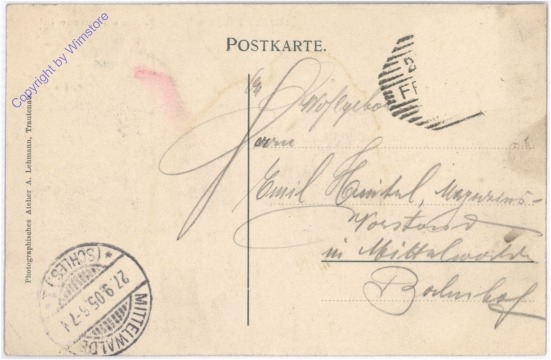 Copyright by Wimstore
POSTKARTE.
Herrn
Emil Heintel, Magazins-
Vorstand
in Mittelwalde
Bahnhof
Photographisches Atelier A. Lehmann, Trautenau.
MITTELWALDE
(SCHLES.)
27.9.05.5-7N.